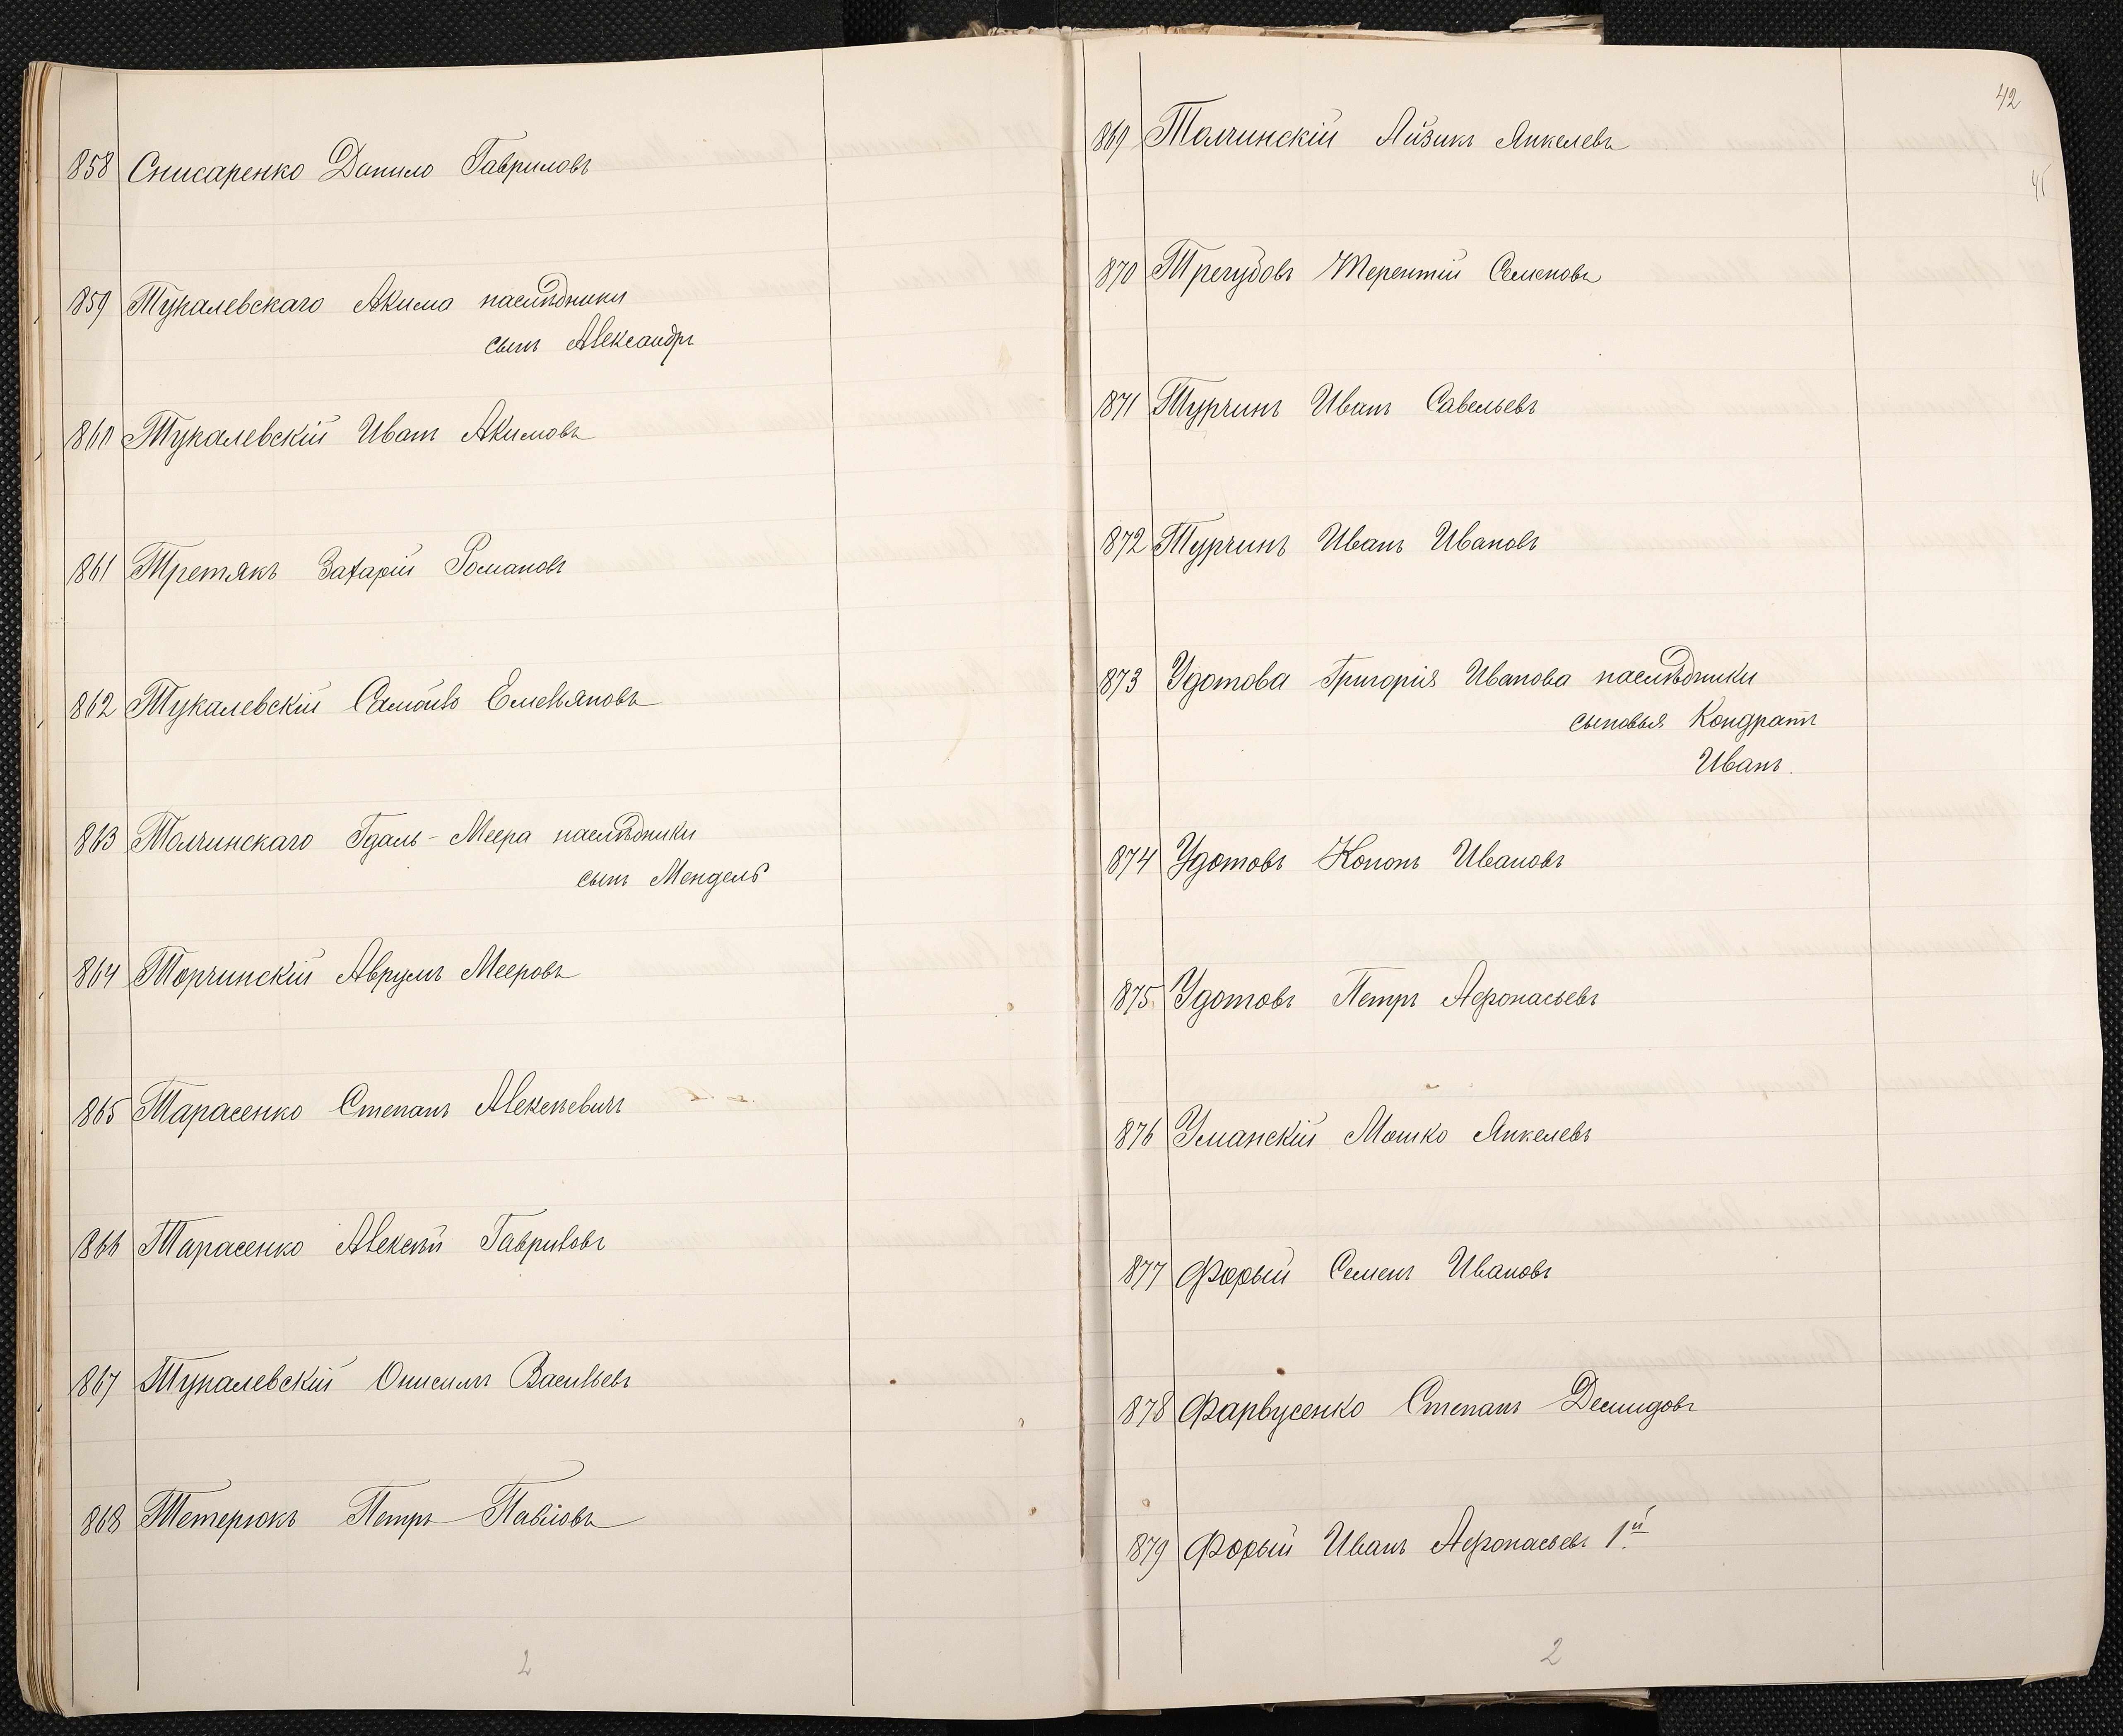 858 Снисаренко Данило Гавриловъ
859 Тукалевскаго Акима наслѣдники
сынъ Александръ
860 Тукалевскій Иванъ Акимовъ
861 Третякъ Захарій Романовъ
862 Тукалевскій Самойло Емельяновъ
863 Толчинскаго Гдаль-Меера наслѣдники
сынъ Мендель
864 Торчинскій Аврумъ Мееровъ
865 Тарасенко Степанъ Алексѣевичъ
866 Тарасенко Алексѣй Гавриловъ
867 Тукалевскій Онисимъ Васильевъ
868 Тетерюкъ Петръ Павловъ
2
42
869 Толчинскій Айзикъ Янкелевъ
870 Трегубовъ Терентій Семеновъ
871 Турчинъ Иванъ Савельевъ
872 Турчинъ Иванъ Ивановъ
873 Удотова Григорія Иванова наслѣдники
сыновья Кондратъ
Иванъ.
874 Удотовъ Кононъ Ивановъ
875 Удотовъ Петръ Афонасьевъ
876 Уманскій Мошко Янкелевъ
877 Форый Семенъ Ивановъ
878 Фарвусенко Степанъ Демидовъ
879 Форый Иванъ Афонасьевъ 1й
2